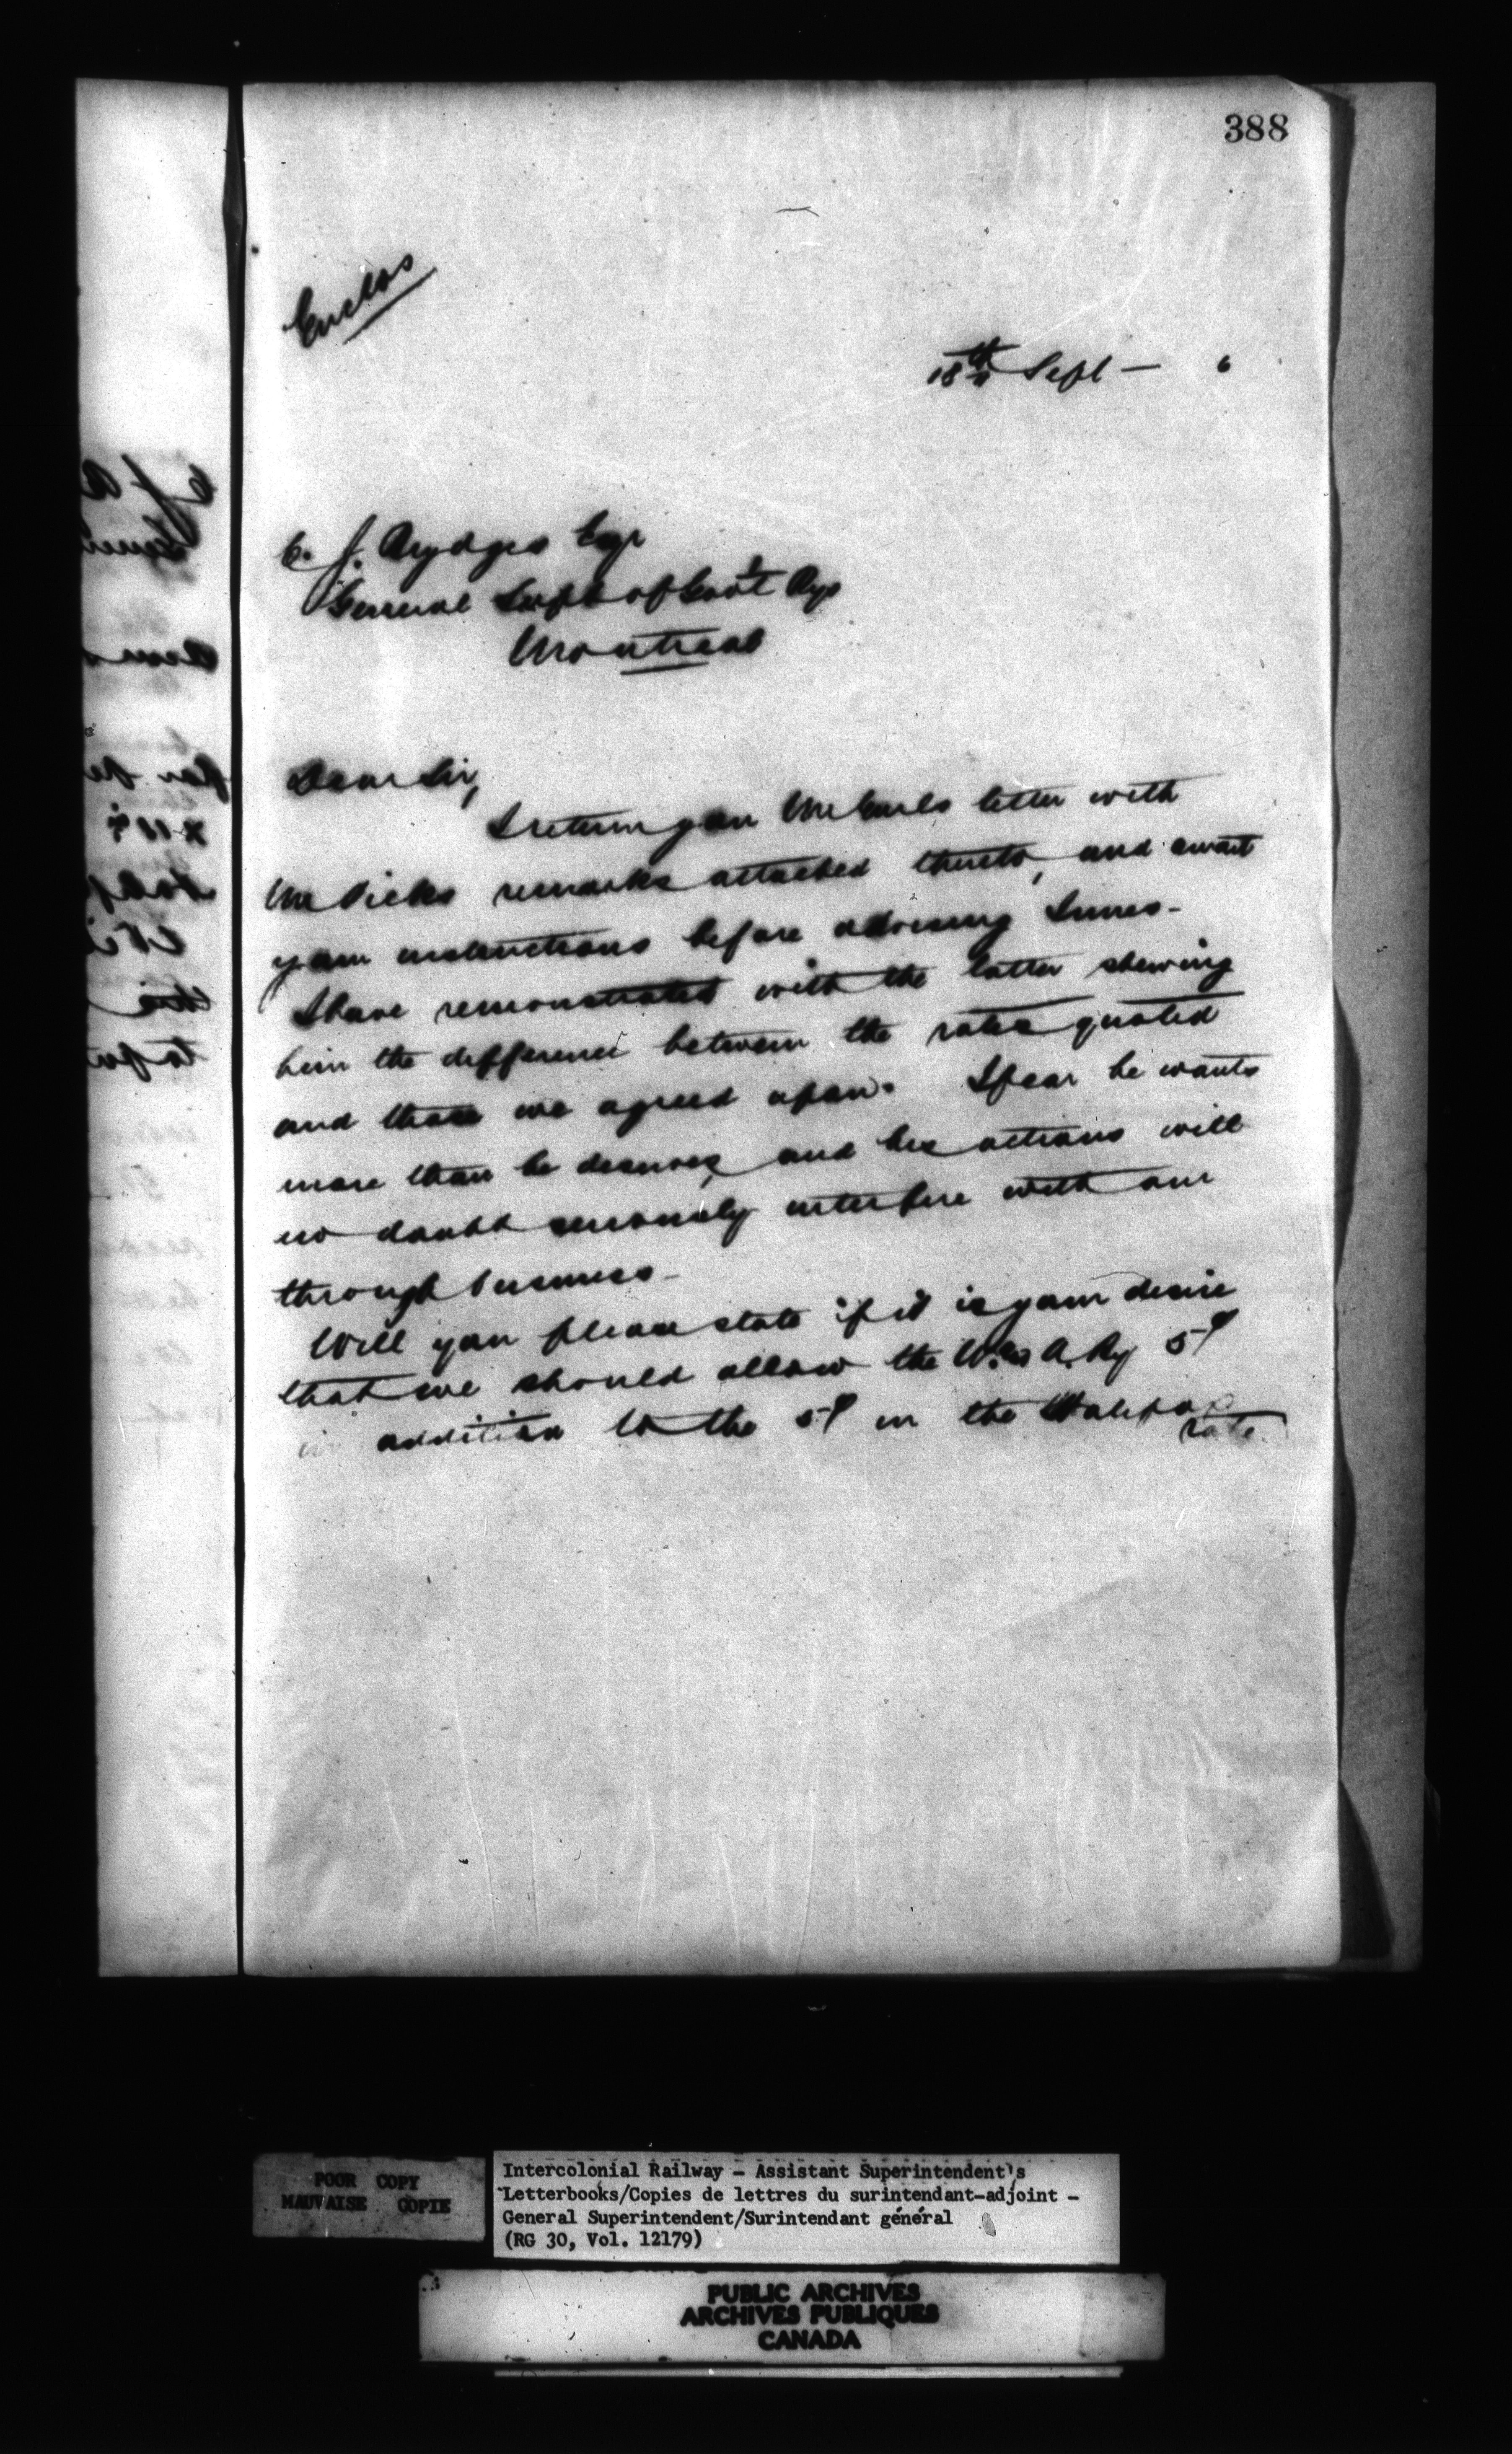 388
Enclos
18th Sept — 6
C. J. Brydges Esqr
General Supt of Govt Rys
Montreal
Dear Sir,
I return you Mr Earls letter with
Mr Dicks remarks attached thereto, and await
your instructions before advising Innes -
I have remonstrated with the latter shewing
him the difference between the rates quoted
and those we agreed upon. I fear he wants
more than he deserves, and his actions will
no doubt seriously interfere with our
through business -
Will you please state if it is your desire
that we should allow the W. & A. Ry 5¢
in addition to the 5¢ in the Halifax
rate.
POOR COPY
MAUVAISE COPIE
Intercolonial Railway - Assistant Superintendent's
Letterbooks/Copies de lettres du surintendant-adjoint -
General Superintendent/Surintendant général
(RG 30, Vol. 12179)
PUBLIC ARCHIVES
ARCHIVES PUBLIQUES
CANADA